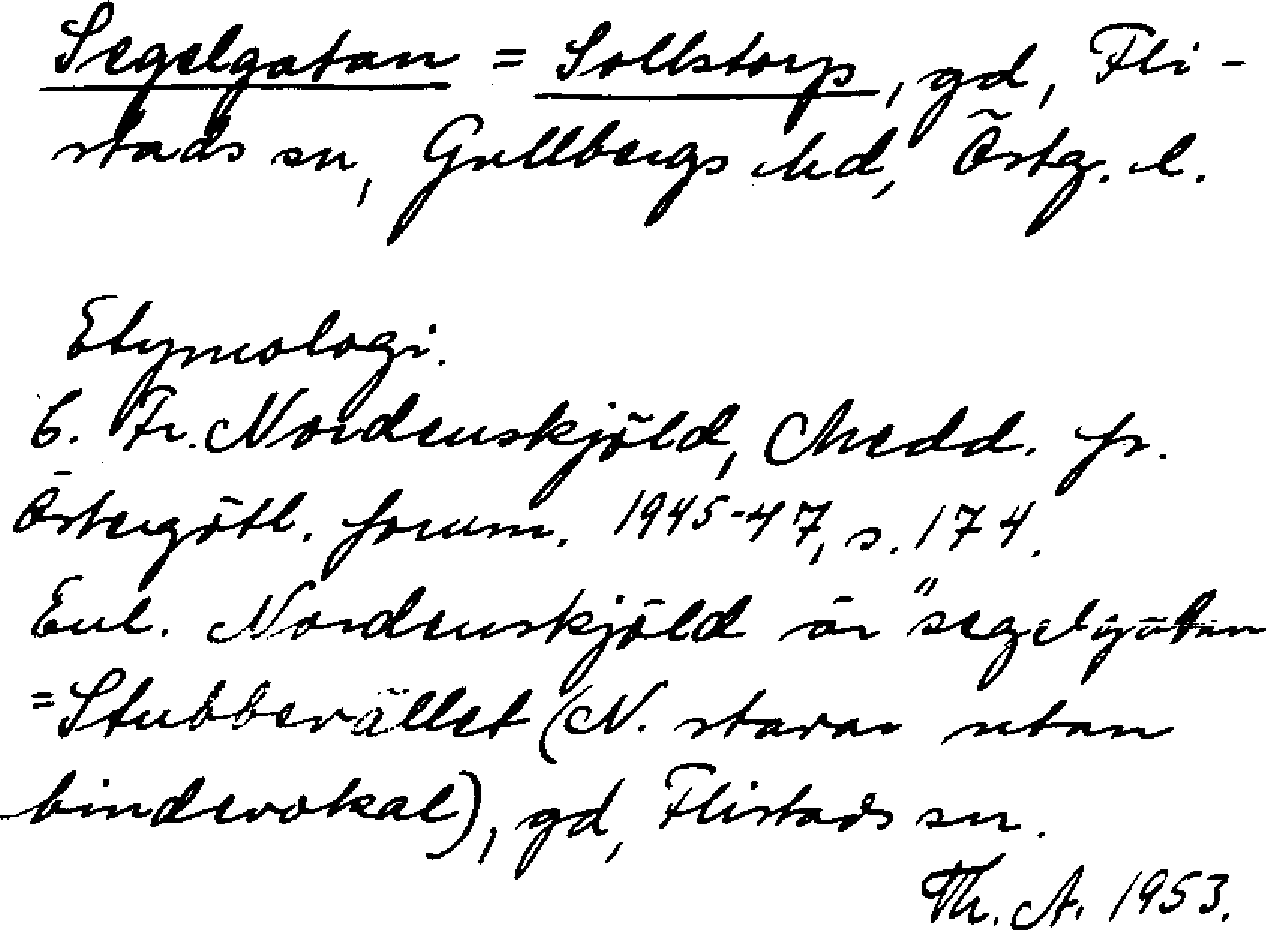 Segelgatan = Sollstorp, gd, Fli-
stads sn, Gullbergs hd, Östg. l.
Etymologi.
C. Fr. Nordenskjöld, Medd. fr.
Östergötl. fornm. 1945-47, s. 174.
Enl. Nordenskjöld är "segelgatan
=Stubbevället (N. stavar utan
bindevokal), gd, Flistads sn.
Th. A. 1953.